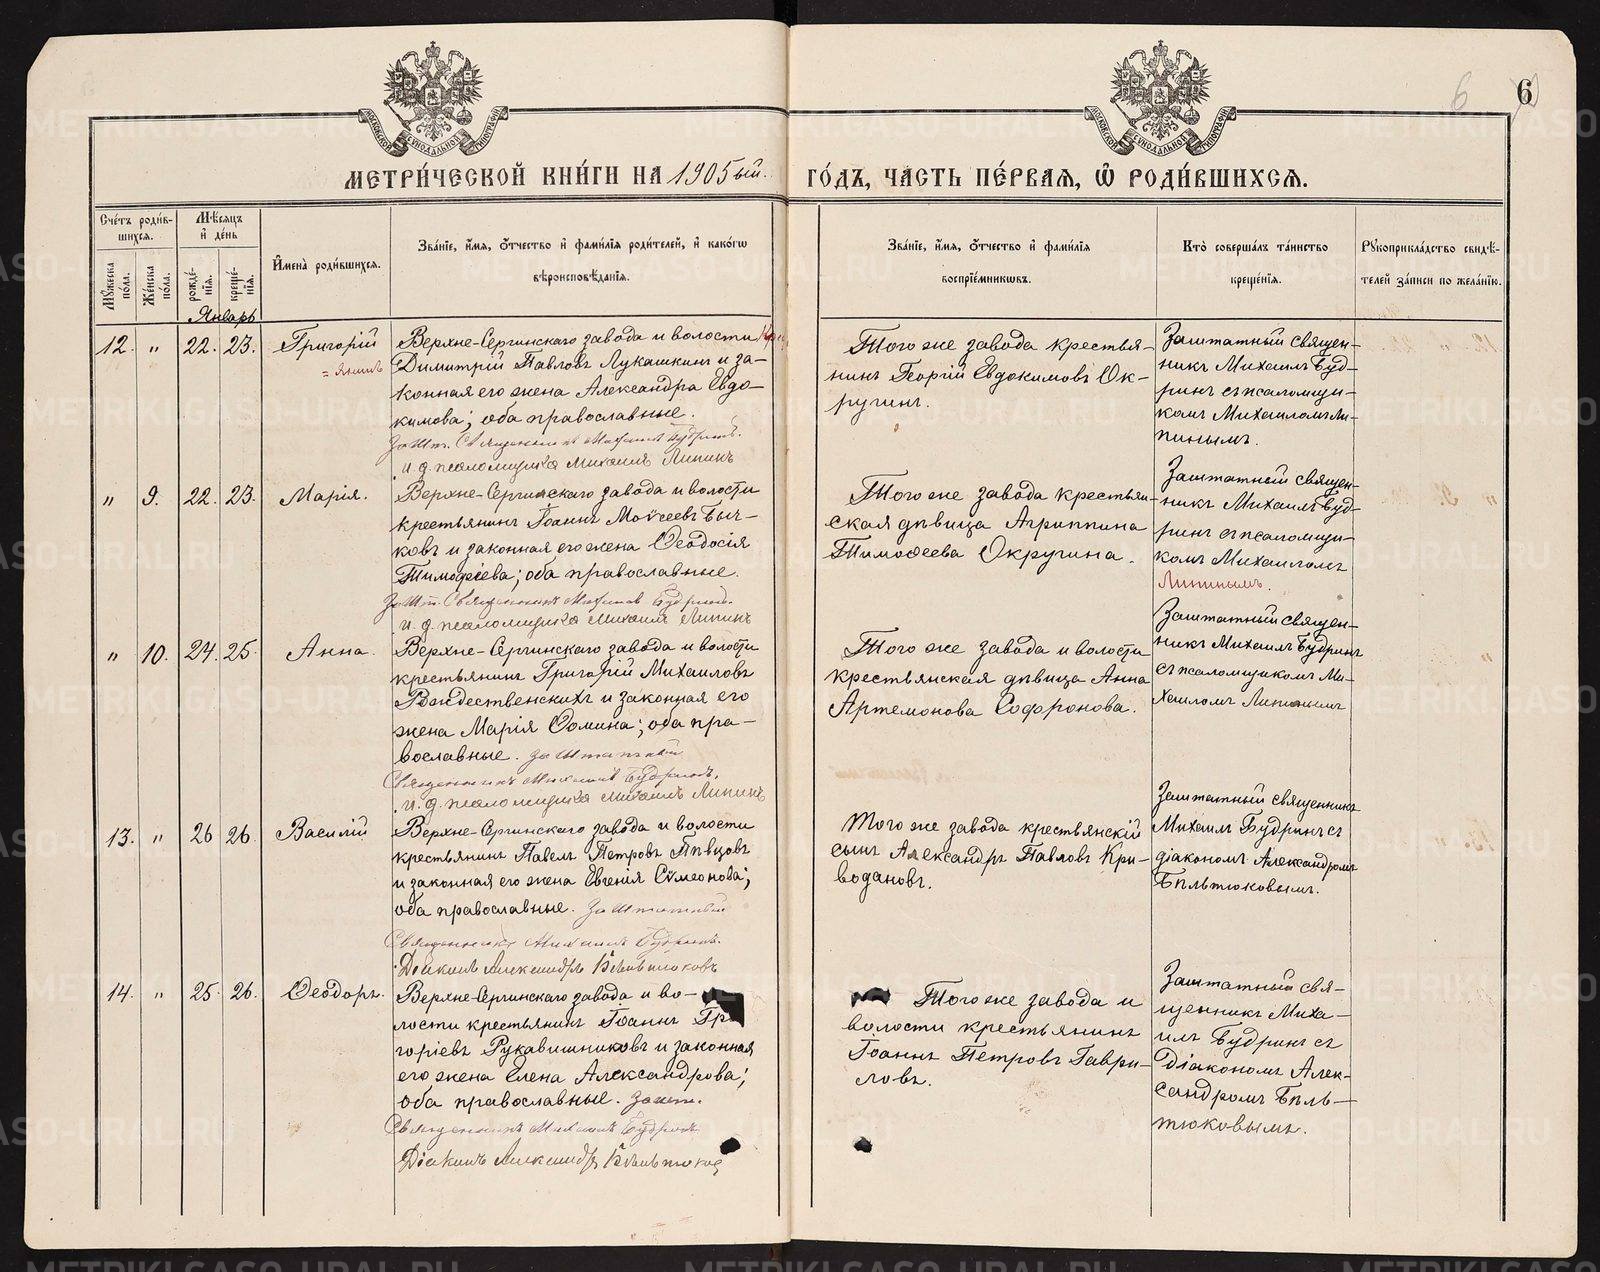 6
6
МОСКОВСКОЙ СѴНОДАЛЬНОЙ ТИПОГРАФІИ
МОСКОВСКОЙ СѴНОДАЛЬНОЙ ТИПОГРАФІИ
МЕТРИ́ЧЕСКОЙ КНИ́ГИ НА 1905 ый.
ГО́ДЪ, ЧА́СТЬ ПЕ́РВАѦ, Ѽ РОДИ́ВШИХСѦ.
Сче́тъ роди́в-
шихсѧ.
Мꙋ́жеска по́ла.
Же́нска по́ла.
Мѣ́сѧцъ
и҆ де́нь
рожде́-
нїѧ.
креще́-
нїѧ.
И҆мена̀ роди́вшихсѧ.
Зва́нїе, и҆́мѧ, ѻ҆́тчество и҆ фами́лїѧ роди́телей, и҆ како́гѡ
вѣроисповѣ́данїѧ.
Зва́нїе, и҆́мѧ, ѻ҆́тчество и҆ фами́лїѧ
воспрїе́мникѡвъ.
Кто̀ соверша́лъ та́инство
креще́нїѧ.
Рꙋкоприкла́дство свидѣ́-
телей за́писи по жела́нїю.
Январь
12. " 22. 23. Григорій
Верхне-Сергинскаго завода и волости
Димитрій Павловъ Лукашкинъ и за-
конная его жена Александра Евдо-
кимова; оба православные.
Зашт. Священникъ Михаилъ Будринъ.
и. д. псаломщика Михаилъ Липинъ
Того же завода крестья-
нинъ Георгій Евдокимовъ Ок-
ругинъ.
Заштатный священ-
никъ Михаилъ Буд-
ринъ съ псаломщи-
комъ Михаиломъ Ли-
пинымъ.
" 9. 22. 23. Марія.
Верхне-Сергинскаго завода и волости
крестьянинъ Іоаннъ Моѵсеевъ Быч-
ковъ и законная его жена Ѳеодосія
Тимоѳеева; оба православные.
Зашт. Священникъ Михаилъ Будринъ.
и. д. псаломщика Михаилъ Липинъ
Того же завода крестьян-
ская дѣвица Агриппина
Тимоѳеева Округина.
Заштатный священ-
никъ Михаилъ Буд-
ринъ съ псаломщи-
комъ Михаиломъ
Липинымъ.
" 10. 24. 25. Анна.
Верхне-Сергинскаго завода и волости
крестьянинъ Григорій Михаиловъ
Рождественскихъ и законная его
жена Марія Ѳомина; оба пра-
вославные. Заштатный
Священникъ Михаилъ Будринъ.
и. д. псаломщика Михаилъ Липинъ
Того же завода и волости
крестьянская дѣвица Анна
Артемонова Софронова.
Заштатный священ-
никъ Михаилъ Будринъ
съ псаломщикомъ Ми-
хаиломъ Липинымъ
13. " 26 26. Василій
Верхне-Сергинскаго завода и волости
крестьянинъ Павелъ Петровъ Пѣвцовъ
и законная его жена Евгенія Сѵмеонова;
оба православные. Заштатный
Священникъ Михаилъ Будринъ.
Діаконъ Александръ Бѣльтюковъ
Того же завода крестьянскій
сынъ Александръ Павловъ Кри-
водановъ.
Заштатный священникъ
Михаилъ Будринъ съ
діакономъ Александромъ
Бѣльтюковымъ.
14. " 25. 26. Ѳеодоръ.
Верхне-Сергинскаго завода и во-
лости крестьянинъ Іоаннъ Гри
горіевъ Рукавишниковъ и законная
его жена Елена Александрова;
оба православные. Зашт.
Священникъ Михаилъ Будринъ
Діаконъ Александръ Бѣльтюковъ
Того же завода и
волости крестьянинъ
Іоаннъ Петровъ Гаври-
ловъ.
Заштатный свя-
щенникъ Миха-
илъ Будринъ съ
діакономъ Алек-
сандромъ Бѣль-
тюковымъ.
METRIKI.GASO-URAL.RU